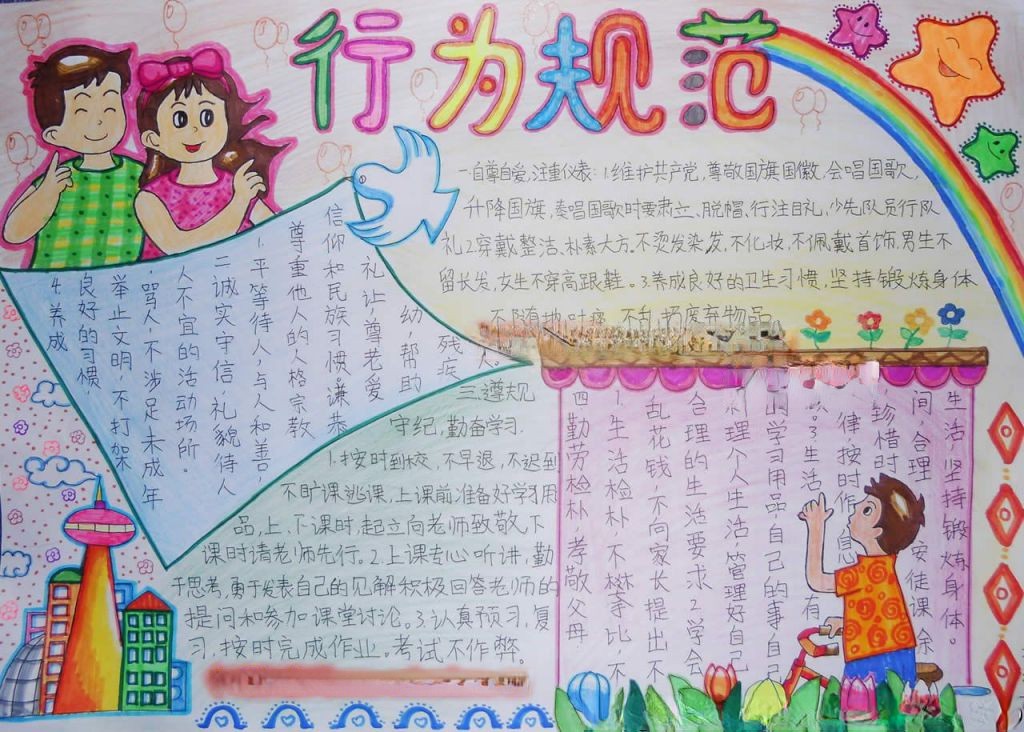 行为规范
一.自尊自爱,注重仪表:1.维护共产党,尊敬国旗国徽,会唱国歌,
升降国旗,奏唱国歌时要肃立、脱帽、行注目礼,少先队员行队
礼2.穿戴整洁、朴素大方,不烫发染发,不化妆,不佩戴首饰,男生不
留长发,女生不穿高跟鞋。3.养成良好的卫生习惯,坚持锻炼身体
不随地吐痰,不乱扔废弃物品
4.养成
良好的习惯,
举止文明,不打架
,骂人,不涉足未成年
人不宜的活动场所。
二诚实守信礼貌待人
1.平等待人,与人和善,
尊重他人的人格宗教
信仰和民族习惯谦恭
礼让,尊老爱
幼帮助
残疾
人。
三.遵规
守纪,勤奋学习.
1.按时到校,不早退,不迟到
不旷课逃课,上课前准备好学习用
品,上、下课时,起立向老师致敬,下
课时请老师先行。2.上课专心听讲,勤
于思考,勇于发表自己的见解积极回答老师的
提问和参加课堂讨论。3.认真预习,复
习,按时完成作业。考试不作弊。
四勤劳检朴,孝敬父母
1.生活检朴,不攀等比,不
乱花钱,不向家长提出不
合理的生活要求2学会
理个人生活管理好自己
的学习用品自己的事自己
。3.生活有
律,按时作息
珍惜时
间,合理安徒课余
生活坚持锻炼身体。